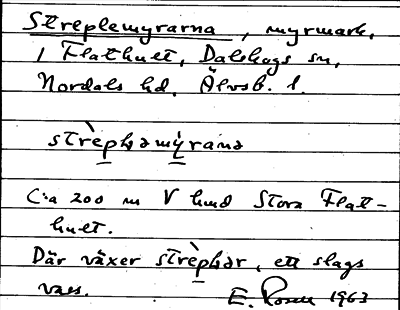 Streplemyrarna, myrmark,
i Flathult, Dalskogs sn,
Nordals hd, Älvsb. l.
strèpḷamýrana
C:a 200 m V hmd Stora Flat-
hult.
Där växer strèplar, ett slags
vass.
E. Rosell 1963